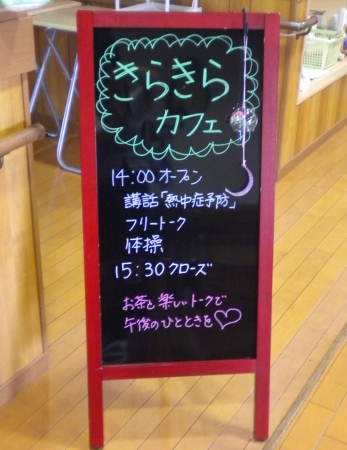 きらきら
カフェ
14:00 オープン
講話「熱中症予防」
フリートーク
体操
15:30 クローズ
お茶と楽しいトークで
午後のひとときを♡